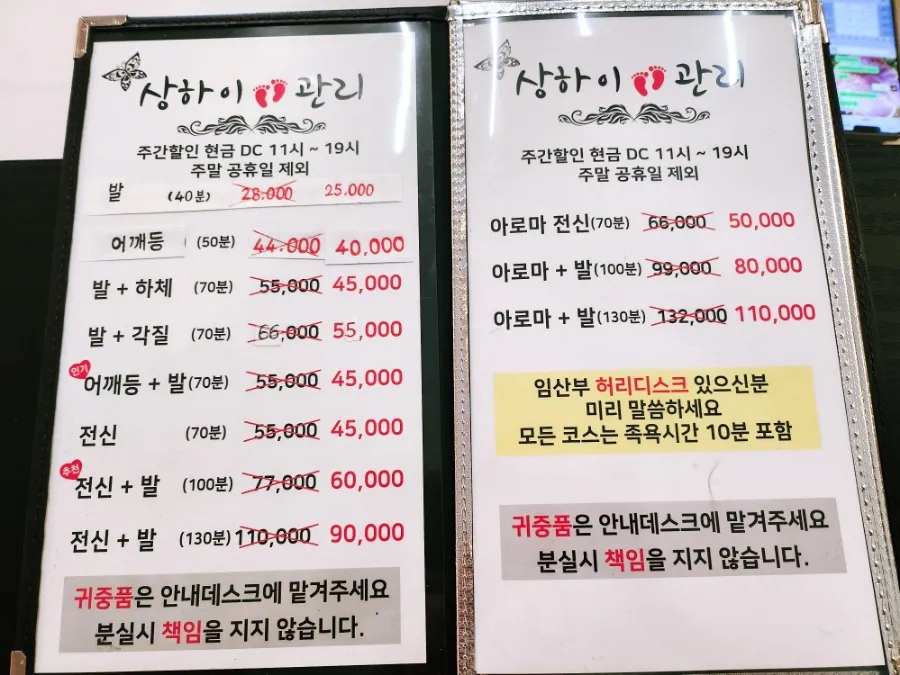 상하이 관리
주간할인 현금 DC 11시 ~ 19시
주말 공휴일 제외
발 (40분) 28.000 25.000
어깨등 (50분) 44.000 40,000
발 + 하체 (70분) 55,000 45,000
발 + 각질 (70분) 66,000 55,000
인기
어깨등 + 발(70분) 55,000 45,000
전신 (70분) 55,000 45,000
추천
전신 + 발 (100분) 77,000 60,000
전신 + 발 (130분) 110,000 90,000
귀중품은 안내데스크에 맡겨주세요
분실시 책임을 지지 않습니다.
상하이 관리
주간할인 현금 DC 11시 ~ 19시
주말 공휴일 제외
아로마 전신(70분) 66,000 50,000
아로마 + 발(100분) 99,000 80,000
아로마 + 발(130분) 132,000 110,000
임산부 허리디스크 있으신분
미리 말씀하세요
모든 코스는 족욕시간 10분 포함
귀중품은 안내데스크에 맡겨주세요
분실시 책임을 지지 않습니다.